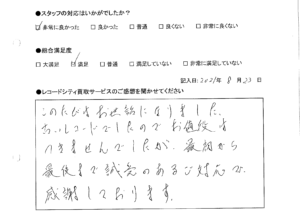 ●スタッフの対応はいかがでしたか?
☑非常に良かった □良かった □普通 □良くない □非常に良くない
●総合満足度
□大満足 ☑満足 □普通 □満足していない □非常に満足していない
記入日:2021年 8月23日
●レコードシティ買取サービスのご感想を聞かせてください
このたびはお世話になりました。
古いレコードでしたのでお値段は
つきませんでしたが、最初から
最後まで誠意のあるご対応で
感謝しております。